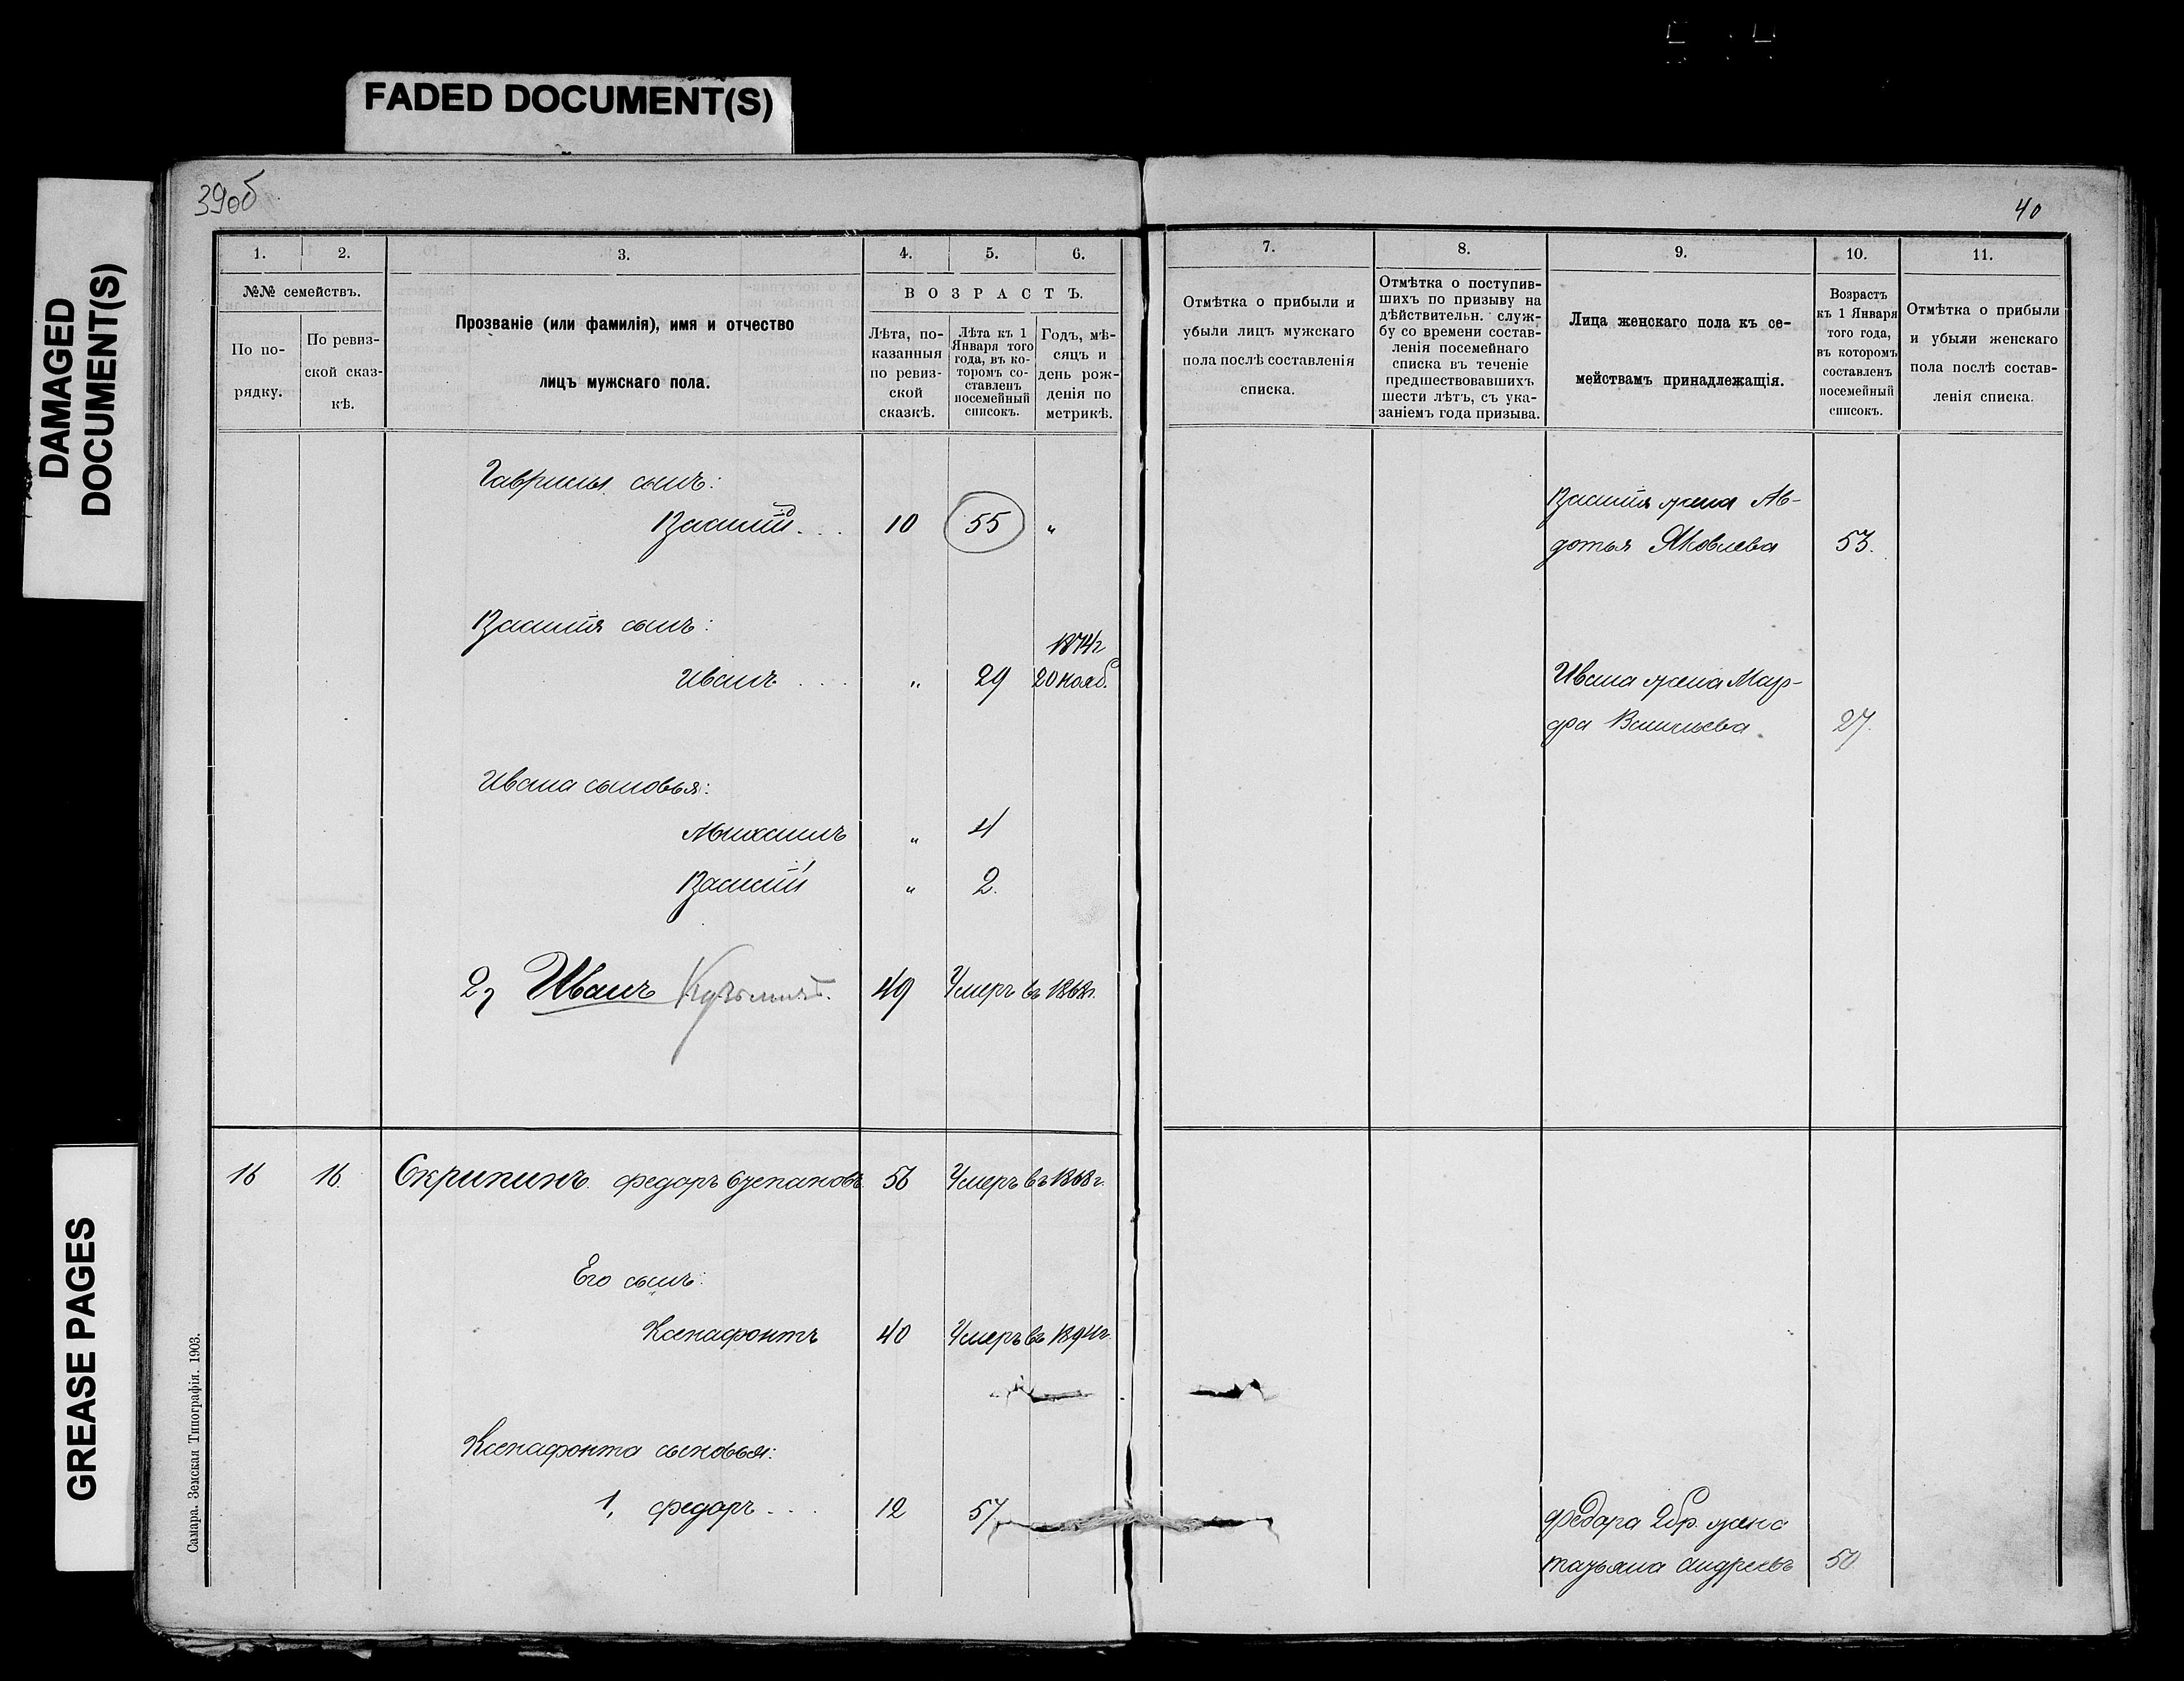 FADED DOCUMENT(S)
DAMAGED
DOCUMENT(S)
GREASE PAGES
39об
40
1.
2.
3.
4.
5.
6.
№№ семействъ.
По по-
рядку.
По ревиз-
ской сказ-
кѣ.
Прозваніе (или фамилія), имя и отчество
лицъ мужскаго пола.
ВОЗРАСТЪ.
Лѣта, по-
казанныя
по ревиз-
ской
сказкѣ.
Лѣта къ 1
Января того
года, въ ко-
торомъ со-
ставленъ
посемейный
списокъ.
Годъ, мѣ-
сяцъ и
день рож-
денія по
метрикѣ.
Гаврилы сынъ:
Василій... 10 55 "
Василія сынъ:
1874г
Иванъ.... " 29 20 нояб.
Ивана сыновья:
Михаилъ " 4
Василій " 2.
2, Иванъ 49 Умеръ въ 1868г.
16 16. Скрипинъ федоръ Степановъ 56 Умеръ въ 1868г.
Его сынъ:
Ксенафонтъ 40 Умеръ въ 1894г.
Ксенафонта сыновья:
1, федоръ... 12 57
Самара. Земская Типографія. 1903.
7.
8.
9.
10.
11.
Отмѣтка о прибыли и
убыли лицъ мужскаго
пола послѣ составленія
списка.
Отмѣтка о поступив-
шихъ по призыву на
дѣйствительн. служ-
бу со времени состав-
ленія посемейнаго
списка въ теченіе
предшествовавшихъ
шести лѣтъ, съ ука-
заніемъ года призыва.
Лица женскаго пола къ се-
мействамъ принадлежащія.
Возрастъ
къ 1 Января
того года,
въ которомъ
составленъ
посемейный
списокъ.
Отмѣтка о прибыли
и убыли женскаго
пола послѣ состав-
ленія списка.
Василія жена Ав-
дотья Яковлева 53.
Ивана жена Мар-
фа Васильева 27.
федора 2бр. жена
татьяна андреевъ 50